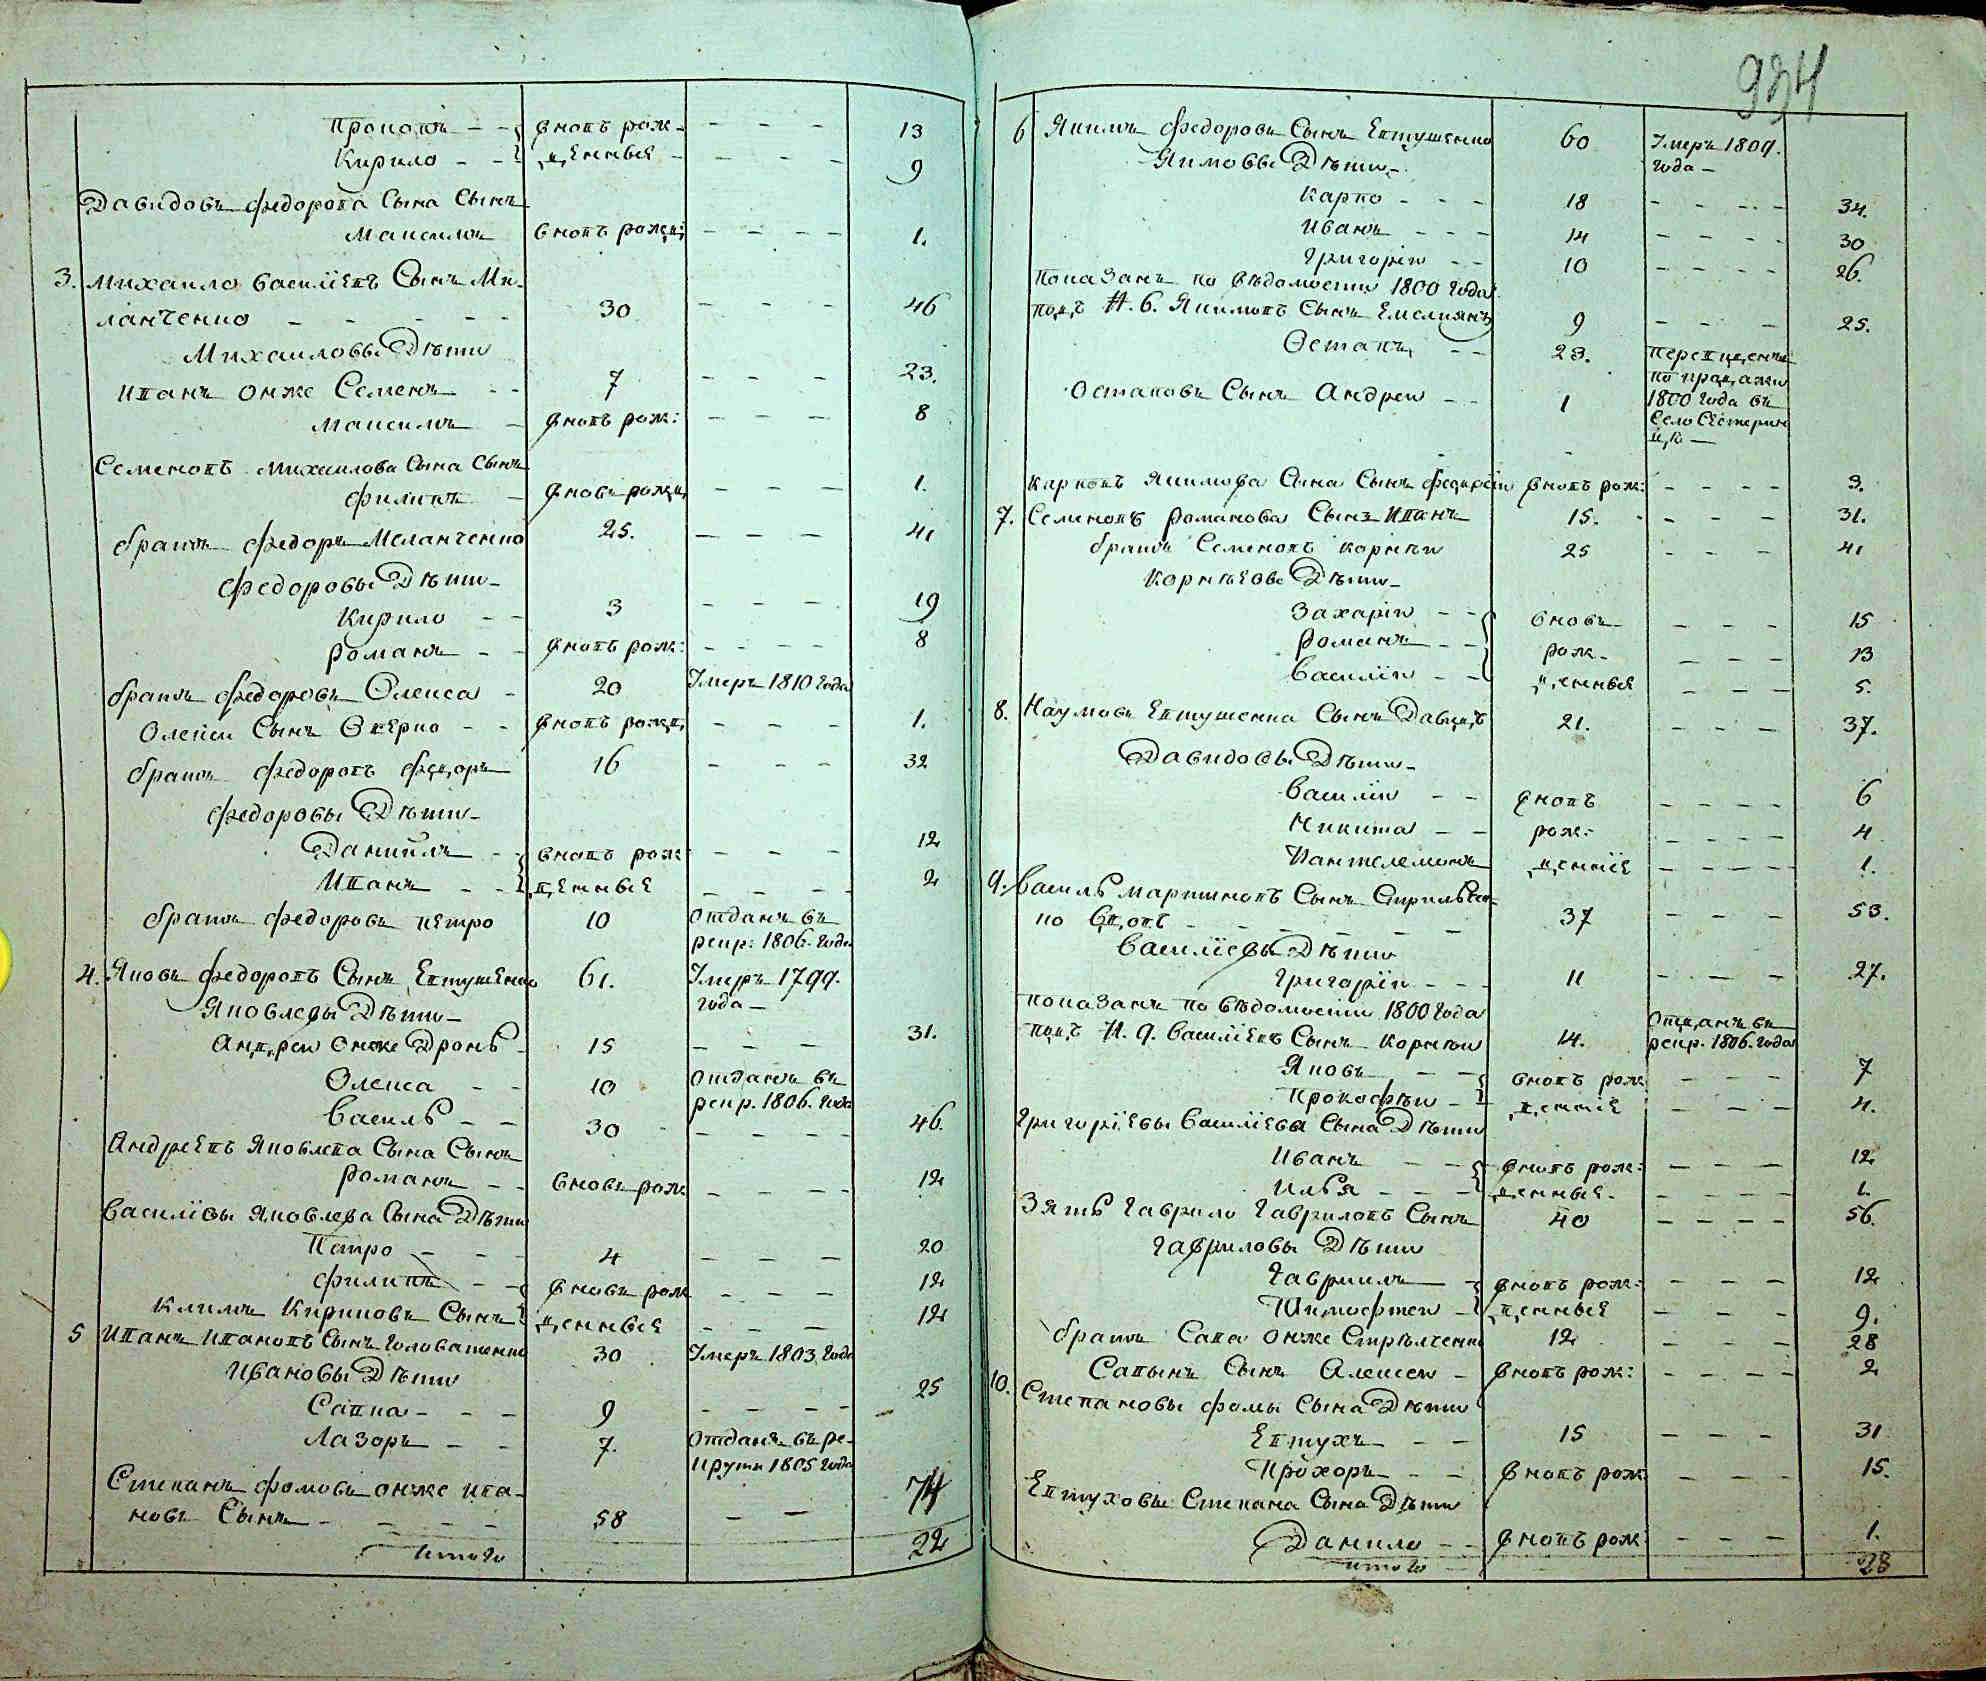 934
Прокопъ - - вновь рож- - - - 13
Кирило - - денныя - - - - 9
Давидовъ федорова Сына Сынъ
Максимъ вновь рожд: - - - - 1.
3. Михаило василіевъ Сынъ Ми-
ланченко - - - - - 30 - - - 46
Михаиловы Дѣти
Иванъ онже Семенъ - - 7 - - - 23.
Максимъ - вновь рож: - - - 8
Семеновъ Михаилова Сына Сынъ
филипъ - вновь рожд, - - - 1.
братъ федоръ Меланченко 25. - - - 41
федоровы Дѣти-
Кирило - - 3 - - - 19
романъ - - вновь рож: - - - - 8
братъ федоровъ Олекса - 20 Умеръ 1810 года
Олексы Сынъ - - вновь рожд, - - - 1.
братъ федоровъ федоръ 16 - - - 32
федоровы Дѣти-
Даниилъ - - вновь рож - - - 12
Иванъ - - денныя - - - - 2
братъ федоровъ петро 10 отданъ въ
рекр: 1806. года
4. Яковъ федоровъ Сынъ Евтушенко 61. Умеръ 1799.
года -
Яковлевы Дѣти-
Андреи онже Дронъ - 15 - - - 31.
Олекса - - 10 отданъ въ
рекр. 1806. года
василь - - 30 - - - - 46.
Андреевъ Яковлева Сына Сынъ
романъ - - вновь рож - - - - 12
василіевы Яковлева Сына Дѣти
Петро - - - 4 - - - 20
филипъ - - вновь рож - - - 12
Климъ Сынъ денныя - - - 12
5 Иванъ Ивановъ Сынъ Головатенко 30 Умеръ 1803 года
Ивановы Дѣти
Савка - - - 9 - - - - 25
Лазоръ - - 7. отданъ въ ре-
круты 1805 года
Степанъ фомовъ онже Ива-
новъ Сынъ - - - - 58 - - 74
итого 22
6 Якимъ федоровъ Сынъ Евтушенко 60 Умеръ 1809.
года -
Якимовы Дѣти-
Карпо - - - 18 - - - - 34.
Иванъ - - - 14 - - - - 30
Григоріи - - 10 - - - - 26.
показанъ по вѣдомости 1800 года
подъ Н. 6. Якимовъ Сынъ Емелианъ 9 - - - 25.
Остапъ - - 23. переведенъ
по продажи
Остаповъ Сынъ Андреи - - 1 1800 года въ
Село
Карповъ Якимова Сына Сынъ вновь рож: - - - - 3.
7. Семеновъ романова Сынъ Иванъ 15. - - - - 31.
братъ Семеновъ корнѣи 25 - - - 41
Корнѣевы Дѣти-
Захаріи - - вновь - - - 15
романъ - - рож- - - - 13
василіи - - денныя - - - - 5.
8. Наумовъ Евтушенка Сынъ Давидъ 21. - - - 37.
Давидовы Дѣти-
василіи - - вновь - - - - 6
Никита - - рож- - - - - 4
Пантелемонъ денніе - - - - 1.
9. василь мартиновъ Сынъ
ко вдовъ - - - - - 37 - - - 53.
василіевы Дѣти
Григоріи - - - 11 - - - 27.
показанъ по вѣдомости 1800 года
подъ Н. 9. василіевъ Сынъ корнѣи 14. отданъ въ
рекр. 1806. года
Яковъ - - вновь рож - - - 7
Прокофѣи - денніе - - - 4.
Григоріевы василіева Сына Дѣти
Иванъ - - вновь рож: - - - - 12
Илья - - - денныя. - - - - 1.
Зять Гаврило Гавриловъ Сынъ 40 - - - - 56.
Гавриловы Дѣти
Гавриилъ - вновь рож: - - - - 12
Тимофтеи - денныя - - - 9.
братъ Сава онже Стрѣлченко 12 - - - 28
Савынъ Сынъ Алексеи - вновь рож: - - - - 2
10. Степановы фомы Сына Дѣти
Евтухъ - - 15 - - - 31
Прохоръ - - вновь рож - - - - 15.
Евтуховы Степана Сына Дѣти
Данило - - вновь рож - - - 1.
итого 28